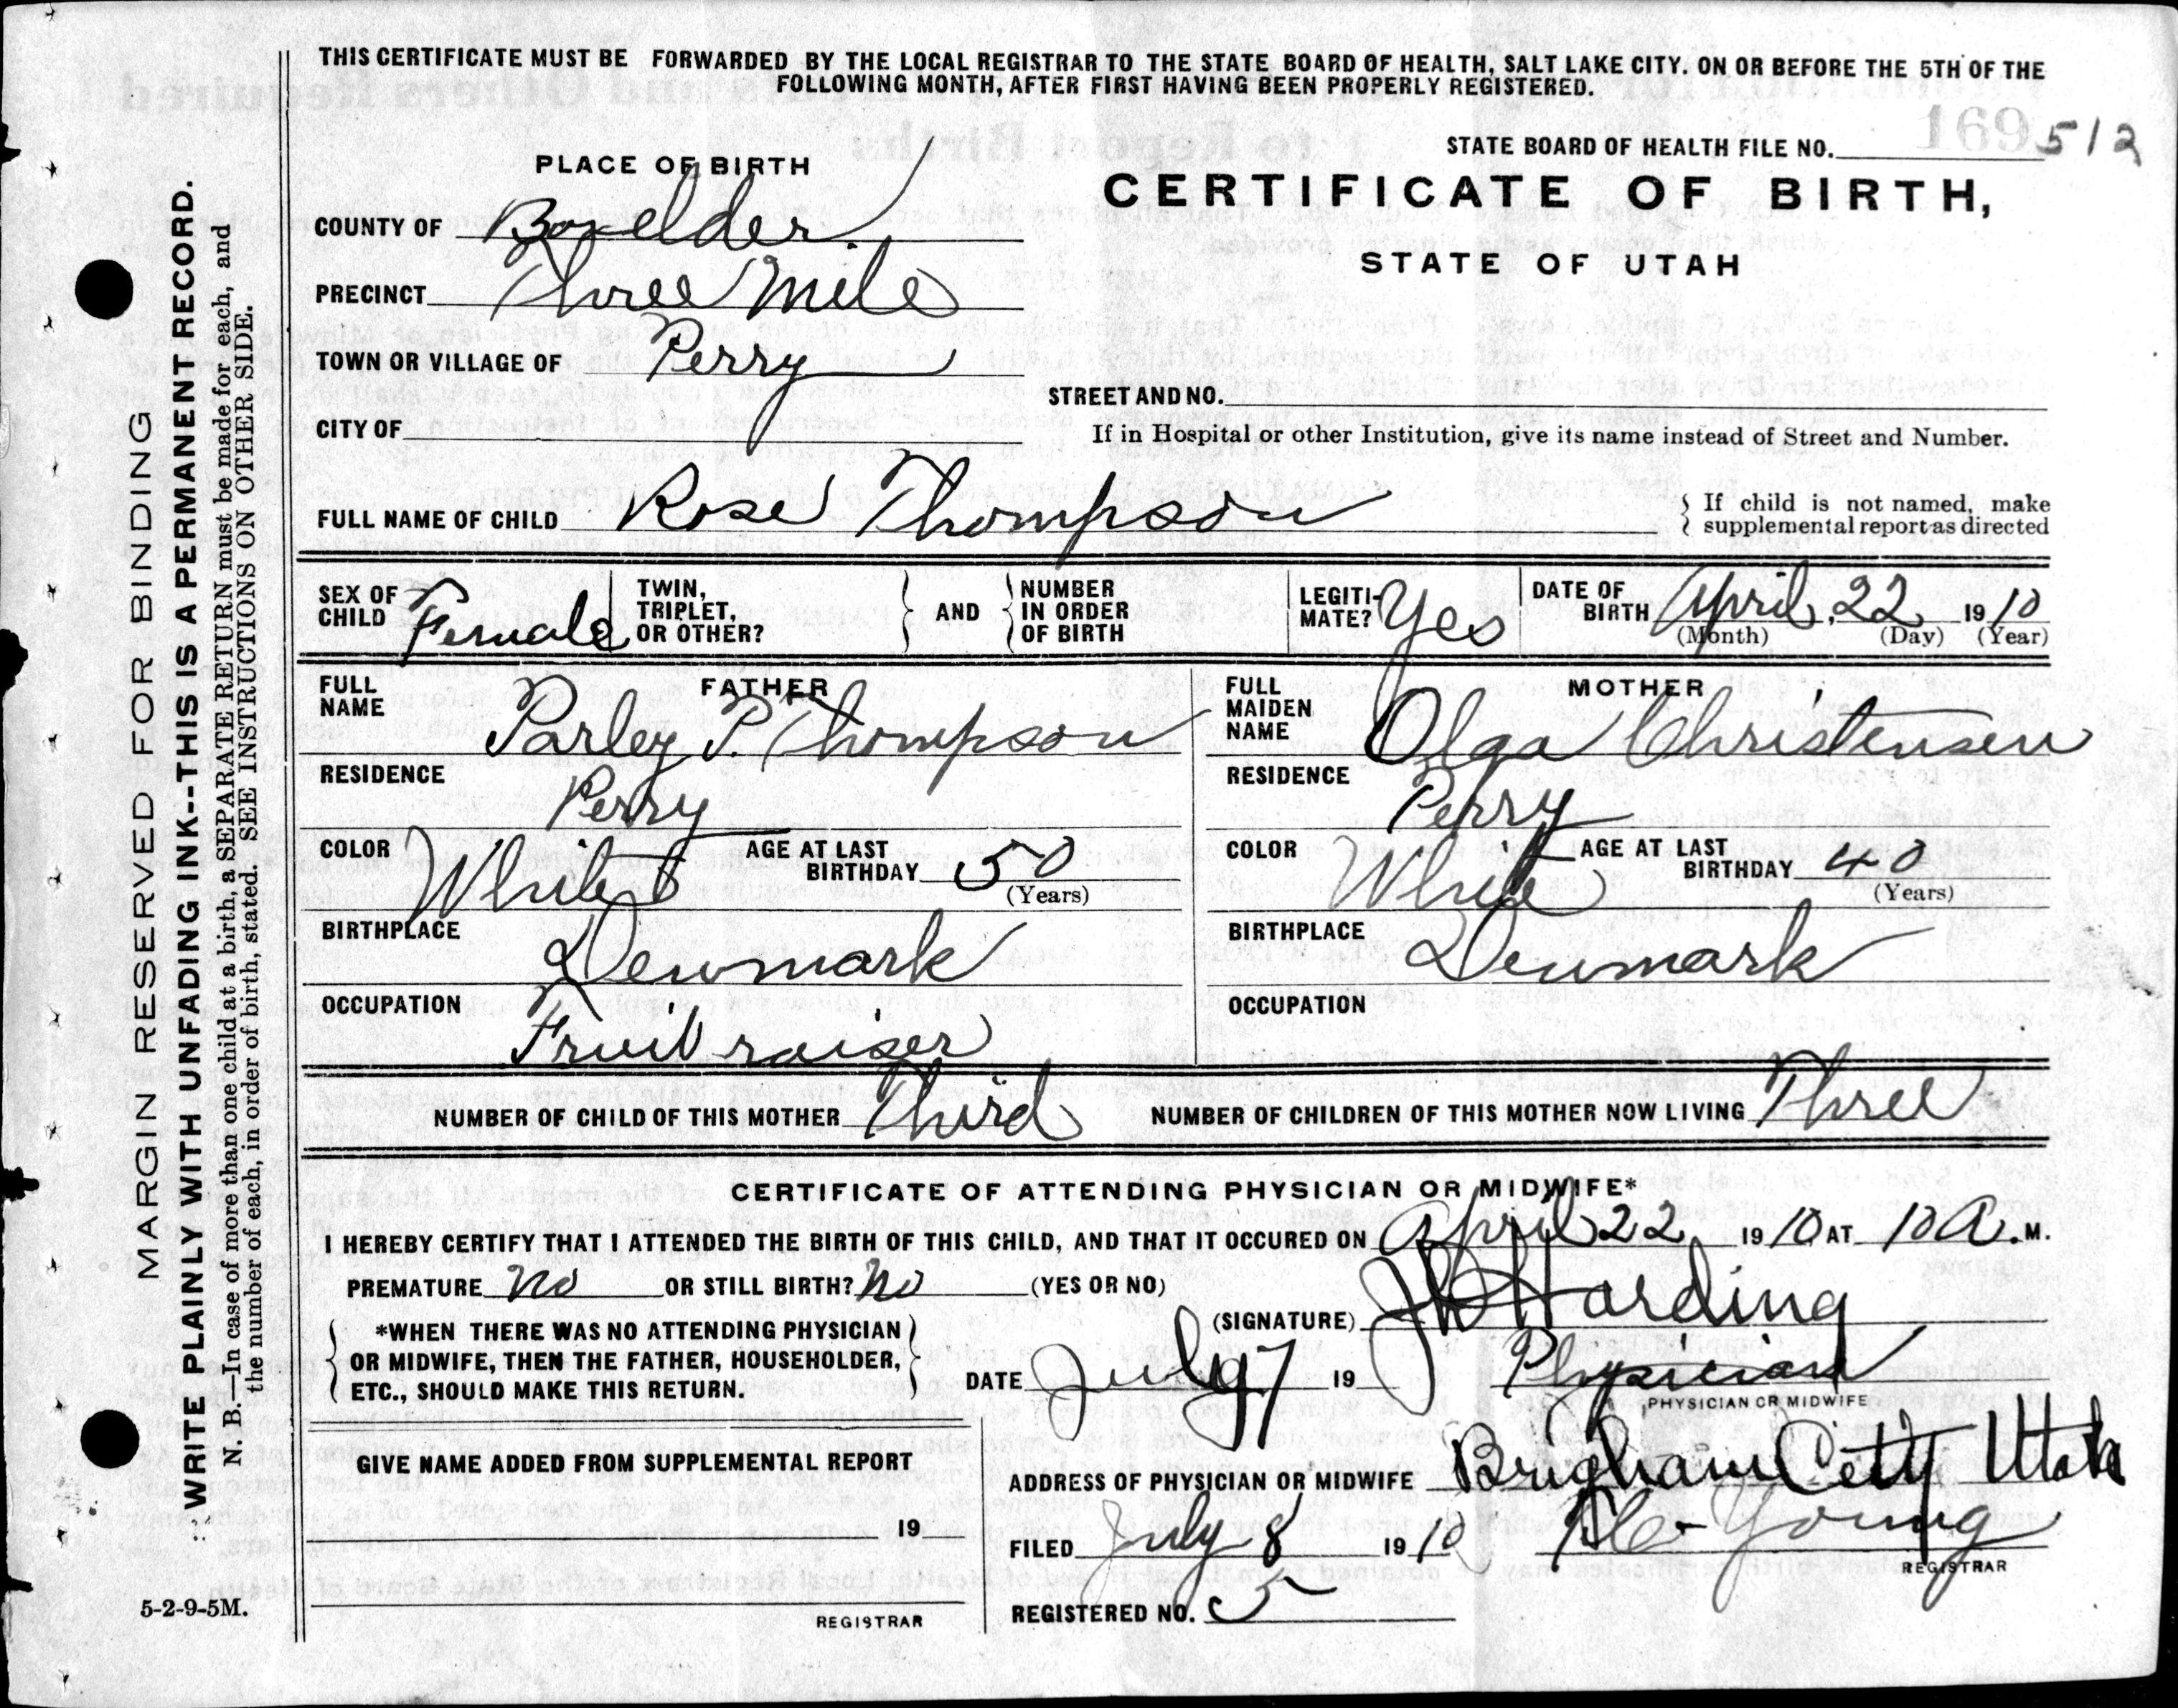 THIS CERTIFICATE MUST BE FORWARDED BY THE LOCAL REGISTRAR TO THE STATE BOARD OF HEALTH, SALT LAKE CITY. ON OR BEFORE THE 5TH OF THE
FOLLOWING MONTH, AFTER FIRST HAVING BEEN PROPERLY REGISTERED.
STATE BOARD OF HEALTH FILE NO. 169512
PLACE OF BIRTH
CERTIFICATE OF BIRTH,
STATE OF UTAH
COUNTY OF Boxelder.
PRECINCT Three Mile
TOWN OR VILLAGE OF Perry
STREET AND NO.
CITY OF
If in Hospital or other Institution, give its name instead of Street and Number.
FULL NAME OF CHILD Rose Thompson
If child is not named, make
supplemental report as directed
SEX OF CHILD Female
TWIN, TRIPLET, OR OTHER?
AND
NUMBER IN ORDER OF BIRTH
LEGITI-MATE? Yes
DATE OF BIRTH April, 22 1910
(Month) (Day) (Year)
FATHER
FULL NAME Parley P. Thompson
RESIDENCE Perry
COLOR White
AGE AT LAST BIRTHDAY 50
(Years)
BIRTHPLACE Denmark
OCCUPATION Fruit raiser
MOTHER
FULL MAIDEN NAME Olga Christensen
RESIDENCE Perry
COLOR White
AGE AT LAST BIRTHDAY 40
(Years)
BIRTHPLACE Denmark
OCCUPATION
NUMBER OF CHILD OF THIS MOTHER Third NUMBER OF CHILDREN OF THIS MOTHER NOW LIVING Three
CERTIFICATE OF ATTENDING PHYSICIAN OR MIDWIFE*
I HEREBY CERTIFY THAT I ATTENDED THE BIRTH OF THIS CHILD, AND THAT IT OCCURED ON April 22 1910 AT 10 A.M.
PREMATURE No OR STILL BIRTH? No (YES OR NO)
(SIGNATURE) Harding
*WHEN THERE WAS NO ATTENDING PHYSICIAN
OR MIDWIFE, THEN THE FATHER, HOUSEHOLDER,
ETC., SHOULD MAKE THIS RETURN.
DATE July 7 19 Physician
PHYSICIAN OR MIDWIFE
GIVE NAME ADDED FROM SUPPLEMENTAL REPORT
19
REGISTRAR
ADDRESS OF PHYSICIAN OR MIDWIFE Brigham City Utah
FILED July 8 1910 Young
REGISTRAR
REGISTERED NO. 5
MARGIN RESERVED FOR BINDING
WRITE PLAINLY WITH UNFADING INK--THIS IS A PERMANENT RECORD.
N. B.—In case of more than one child at a birth, a SEPARATE RETURN must be made for each, and
the number of each, in order of birth, stated. SEE INSTRUCTIONS ON OTHER SIDE.
5-2-9-5M.